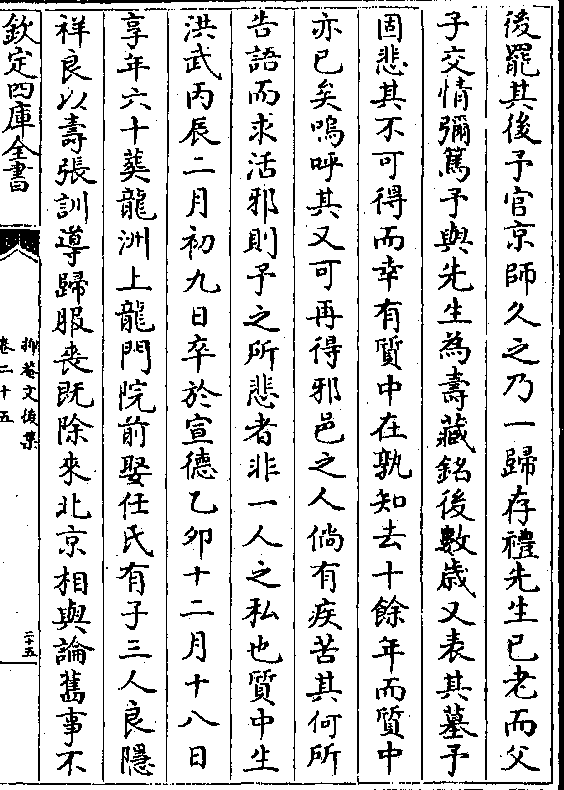 後罷其後予官京師久之乃一歸存禮先生已老而父
子交情彌篤予與先生為壽藏銘後數歲又表其墓予
固悲其不可得而幸有質中在孰知去十餘年而質中
亦已矣嗚呼其又可再得邪邑之人倘有疾苦其何所
告語而求活邪則予之所悲者非一人之私也質中生
洪武丙辰二月初九日卒於宣德乙卯十二月十八日
享年六十葬龍洲上龍門院前娶任氏有子三人良隱
祥良以壽張訓導歸服喪既除來北京相與論舊事不
欽定四庫全書
抑菴文後集
卷二十五
二十五